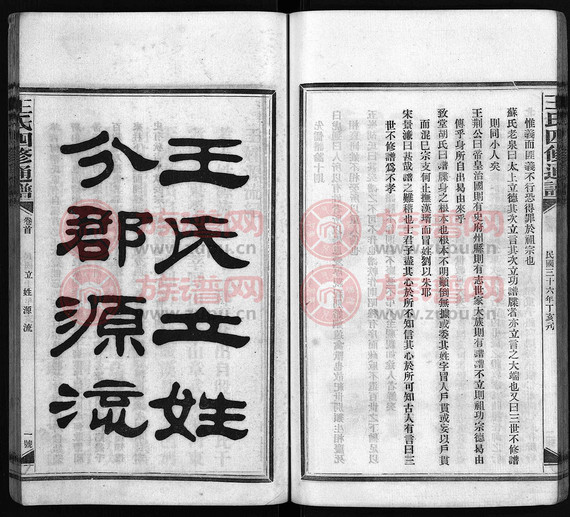 王氏四修通譜
民國三十六年丁亥元
惟義而匪義不行恐得罪於祖宗也
蘇氏老泉曰太上立德其次立言其次立功譜牒者亦立言之大端也又曰三世不修譜
則同小人矣
王荆公曰嘗皇治國則有史府州縣則有志世家大族則有譜譜不立則祖功宗德易由
傳乎身所自出易由來乎
致堂胡氏曰譜牒身之根本也根本不明顛倒無據或委其姓字冒人戶貫或妄以戶貫
而混已宗支何止撫漢壻而冒姓劉以朱耶
宋景濂曰甚哉譜之難稽也士君子盡其心於所不知信其心於所可知古人有言曰三
世不修譜爲不孝
王氏立姓
分郡源流
王氏四修通譜
卷首
立姓源流
一號
族谱网
www.zupu.cn